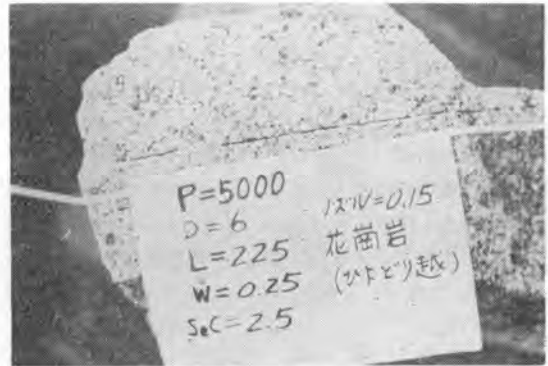 P=5000
D=6
L=225
W=0.25
SeC=2.5
ノズル=0.15
花崗岩
(ひよどり越)